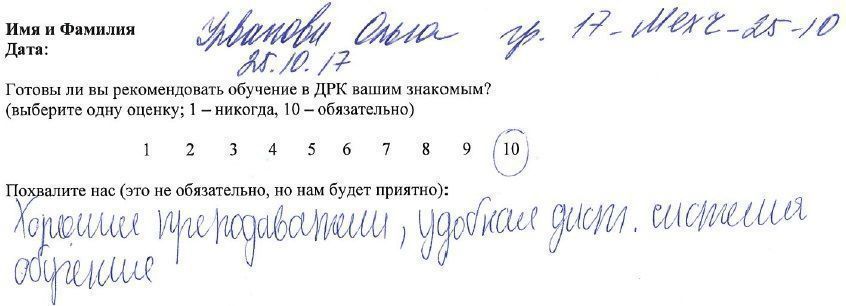 Имя и Фамилия Урванова Ольга гр. 17-МехЧ-25-10
Дата: 25.10.17
Готовы ли вы рекомендовать обучение в ДРК вашим знакомым?
(выберите одну оценку; 1 – никогда, 10 – обязательно)
1 2 3 4 5 6 7 8 9 10
Похвалите нас (это не обязательно, но нам будет приятно):
Хорошие преподаватели, удобная дист. система
обучение